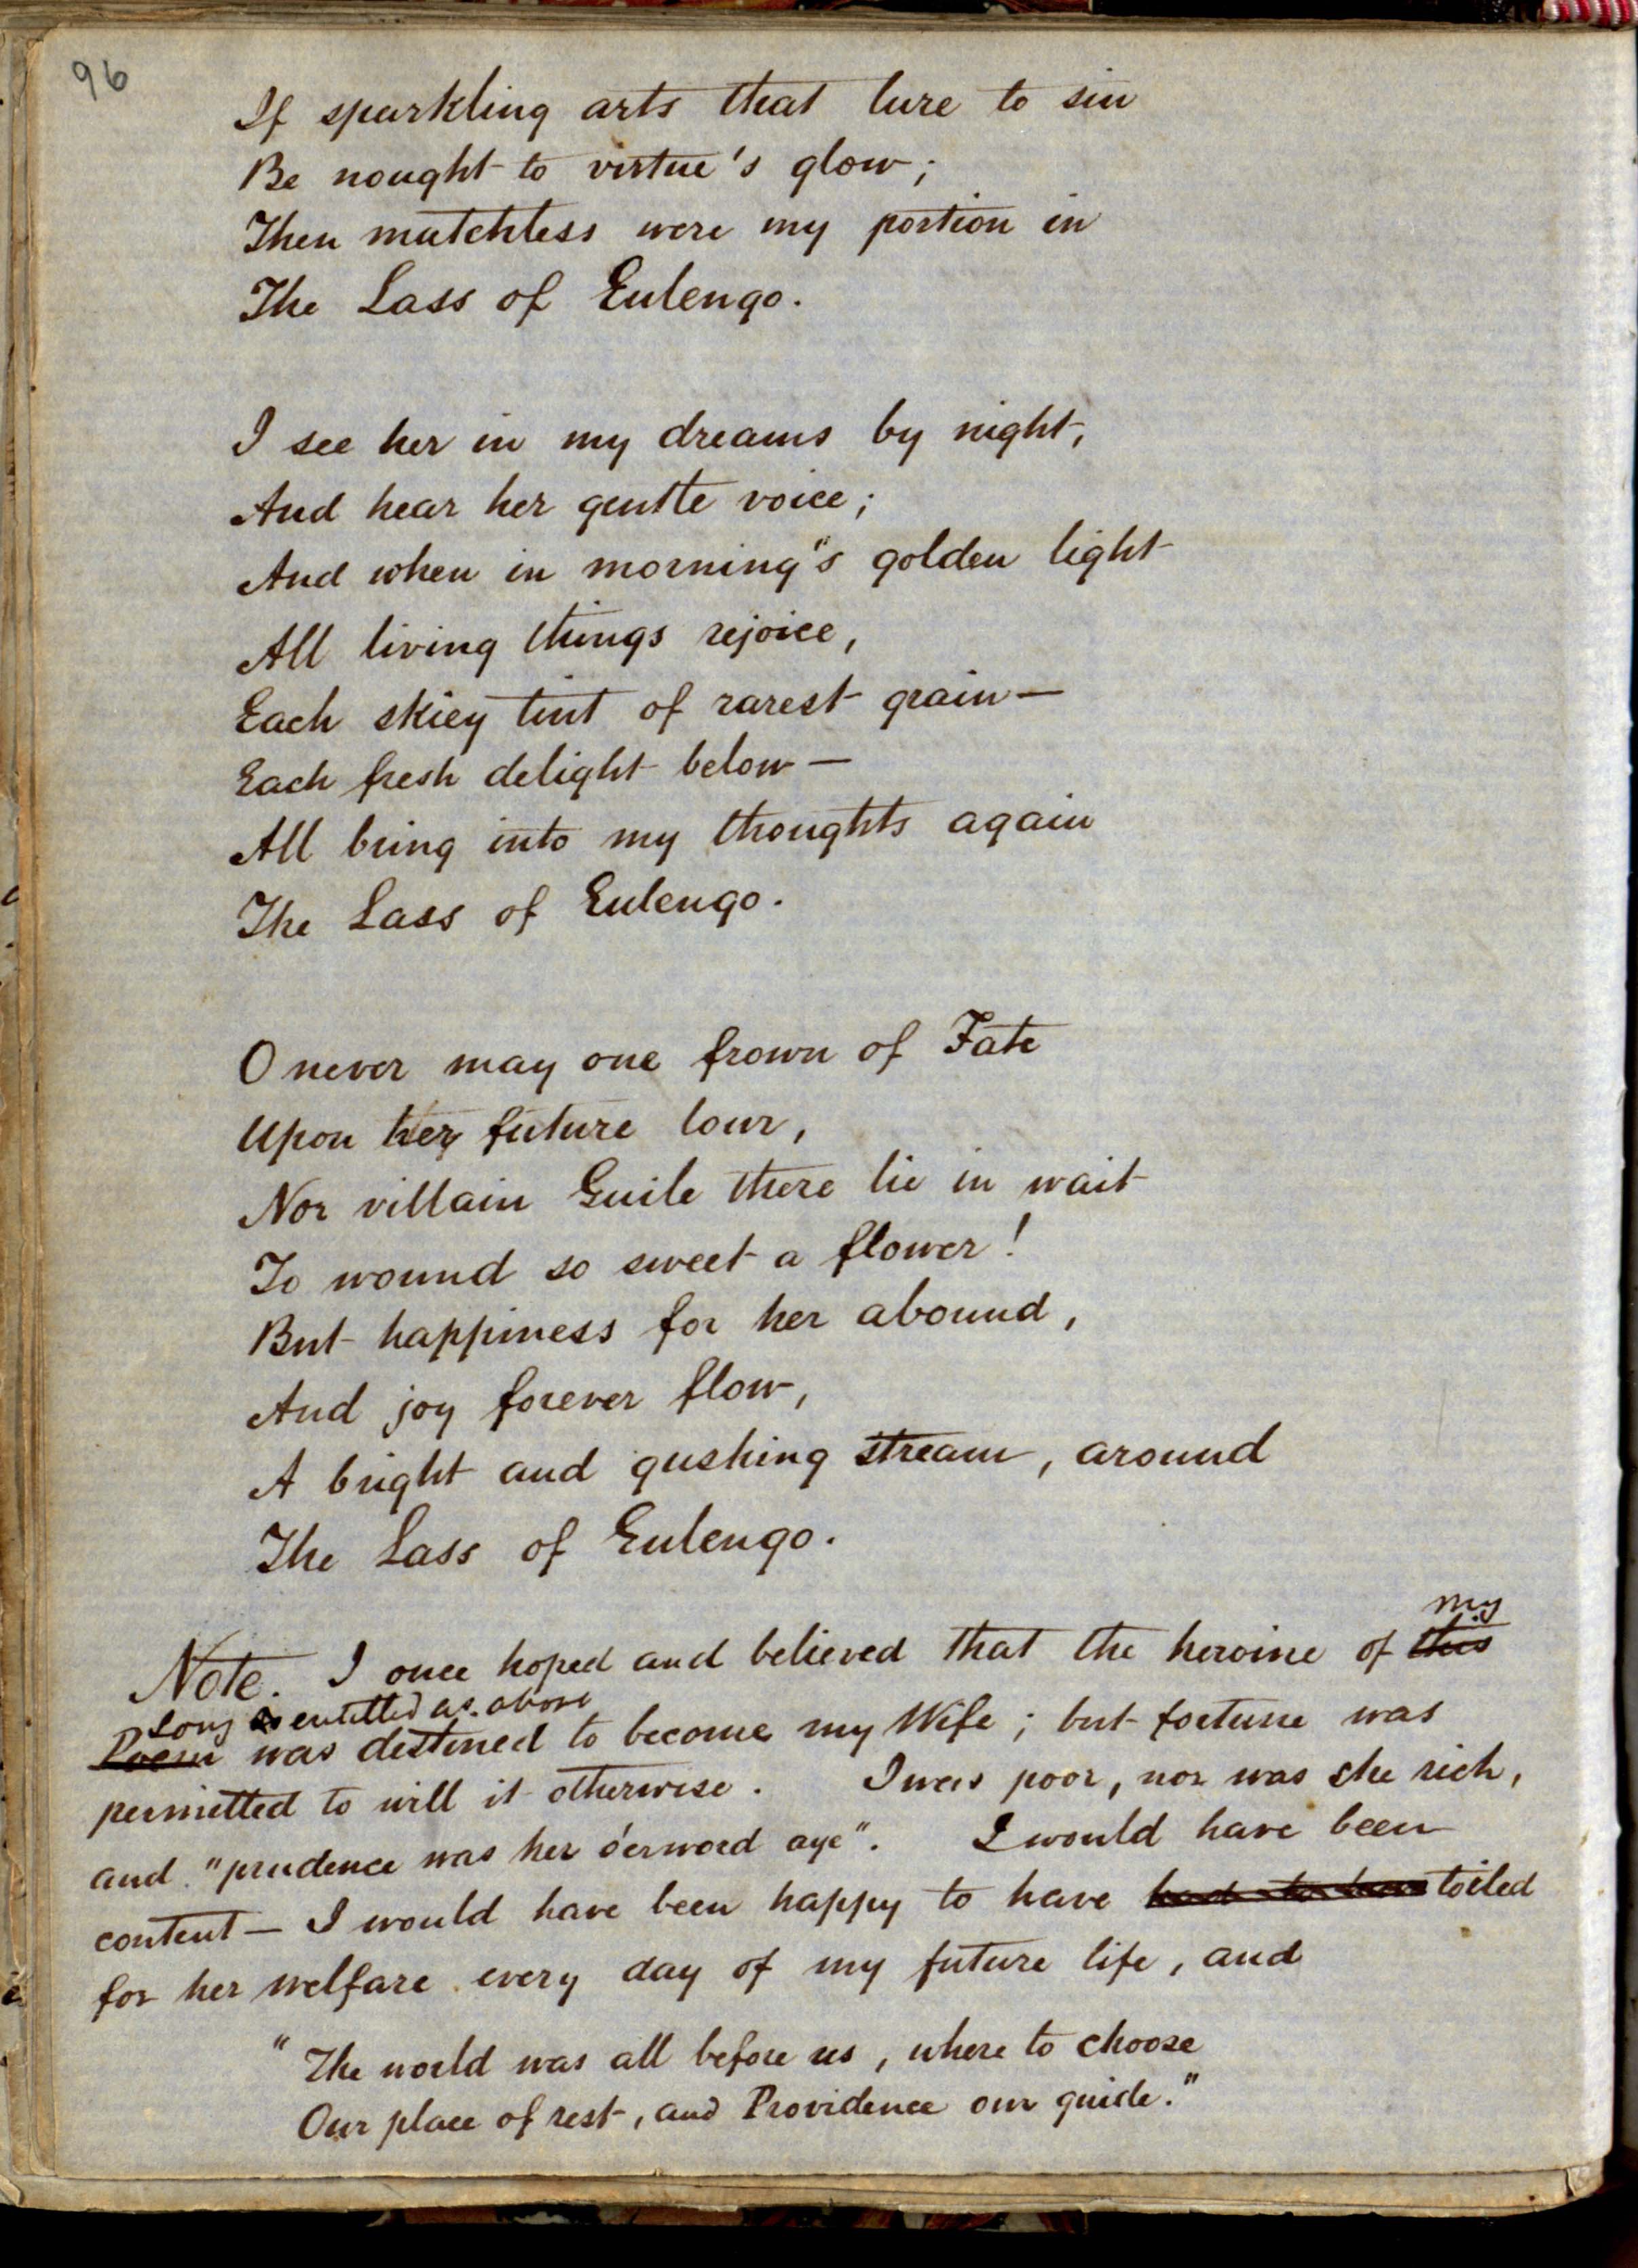 96
If sparkling arts that lure to sin
Be nought to virtue's glow;
Then matchless were my portion in
The Lass of Eulengo.
I see her in my dreams by night,
And hear her gentle voice;
And when in morning's golden light
All living things rejoice,
Each skiey tint of rarest grain—
Each fresh delight below—
All bring into my thoughts again
The Lass of Eulengo.
O never may one frown of Fate
Upon her future lour,
Nor villain Guile there lie in wait
To wound so sweet a flower!
But happiness for her abound,
And joy forever flow,
A bright and gushing stream, around
The Lass of Eulengo.
my
Note. I once hoped and believed that the heroine of this
Song entitled as above
Poem was destined to become my Wife; but fortune was
permitted to will it otherwise. I was poor, nor was she rich,
and "prudence was her o'erword aye". I would have been
content — I would have been happy to have toiled
for her welfare every day of my future life, and
"The world was all before us, where to choose
Our place of rest, and Providence our guide."